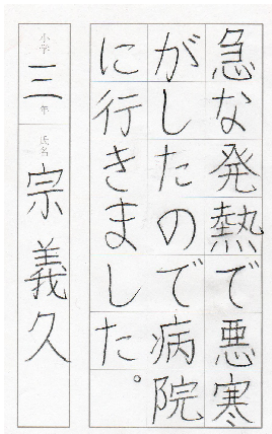 急な発熱で悪寒
がしたので病院
に行きました。
小学三年 氏名 宗義久